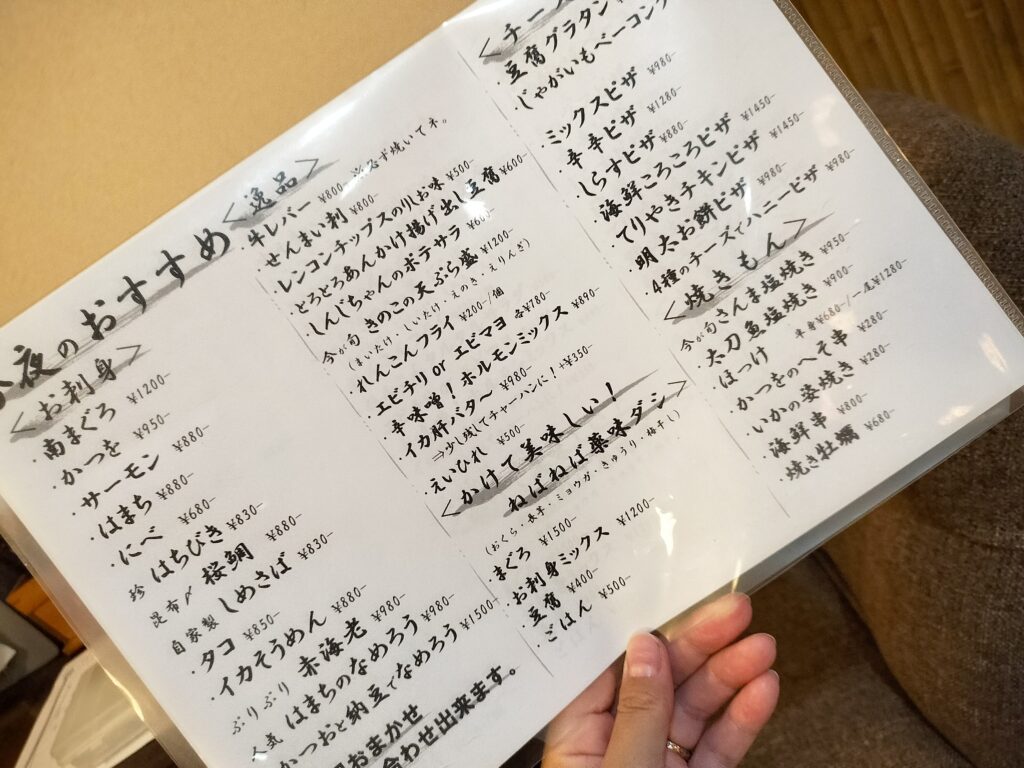 夜のおすすめ
<お刺身>
・南まぐろ ¥1200-
・かつを ¥950-
・サーモン ¥880-
・はまち ¥880-
・にべ ¥680-
珍 はちびき ¥830-
昆布〆 桜鯛 ¥880-
自家製 しめさば ¥830-
・タコ ¥850-
・イカそうめん ¥880-
ぷりぷり 赤海老 ¥980-
人気 はまちのなめろう ¥980-
かつおと納豆でなめろう ¥1500-
おまかせ
合わせ出来ます。
<逸品>
・牛レバー ¥800- ※必ず焼いてネ。
・せんまい刺 ¥800-
・レンコンチップスのりしお味 ¥500-
・とろとろあんかけ揚げ出し豆腐 ¥600-
・しんじちゃんのポテサラ ¥600-
今が旬 きのこの天ぷら盛 ¥1200-
(まいたけ・しいたけ・えのき・えりんぎ)
・れんこんフライ ¥200-/個
・エビチリ or エビマヨ 各¥780-
・辛味噌！ホルモンミックス ¥890-
・イカ肝バタ～ ¥980-
⇒少し残してチャーハンに！+¥350-
・えいひれ ¥500-
<かけて美味しい！
ねばねば薬味ダシ>
(おくら・長芋・ミョウガ・きゅうり・梅干し)
・まぐろ ¥1500-
・お刺身ミックス ¥1200-
・豆腐 ¥400-
・ごはん ¥500-
<チーズ
・豆腐グラタン
・じゃがいもベーコン
・ミックスピザ ¥980-
・辛辛ピザ ¥1280-
・しらすピザ ¥880-
・海鮮ころころピザ ¥1450-
・てりやきチキンピザ ¥1450-
・明太お餅ピザ ¥980-
・4種のチーズでハニーピザ ¥980-
<焼きもん>
今が旬 さんま塩焼き ¥950-
・太刀魚塩焼き ¥900-
・ほっけ 半身¥680-/一尾¥1280-
・かつをのへそ串 ¥280-
・いかの姿焼き ¥280-
・海鮮串 ¥800-
・焼き牡蠣 ¥680-